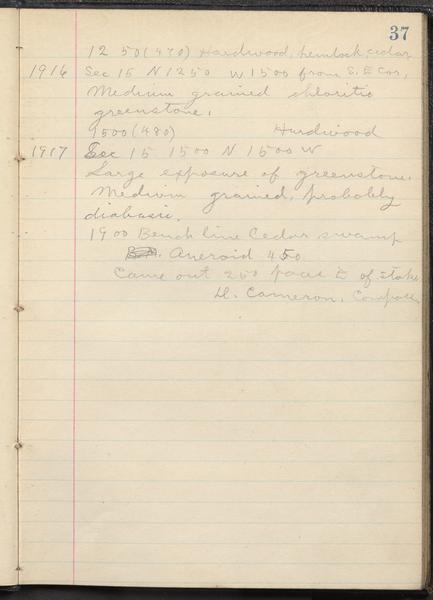 37
12 50 (470) Hardwood, hemlock, cedar
1916 Sec 15 N 1250 W 1500 from S.E Cor,
Medium grained chloritic
greenstone.
1500 (480) Hardwood
1917 Sec 15 1500 N 1500 W
Large exposure of greenstone.
Medium grained, probably
diabasic.
1900 Bench line Cedar swamp
Aneroid 450
Came out 250 paces E of stake
D. Cameron, Compass